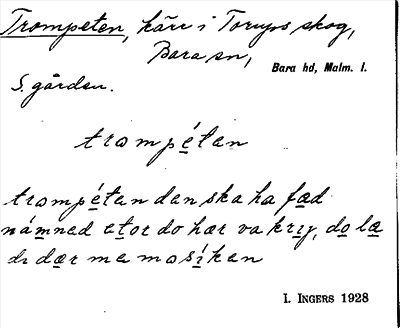 Trompeten, kärr i Torups skog,
Bara sn,
Bara hd, Malm. l.
S. gården.
trompétan
trompétan den ska ha fæd
námned etor do hær va krɪj, do læ
di dær me mosíken
I. INGERS 1928